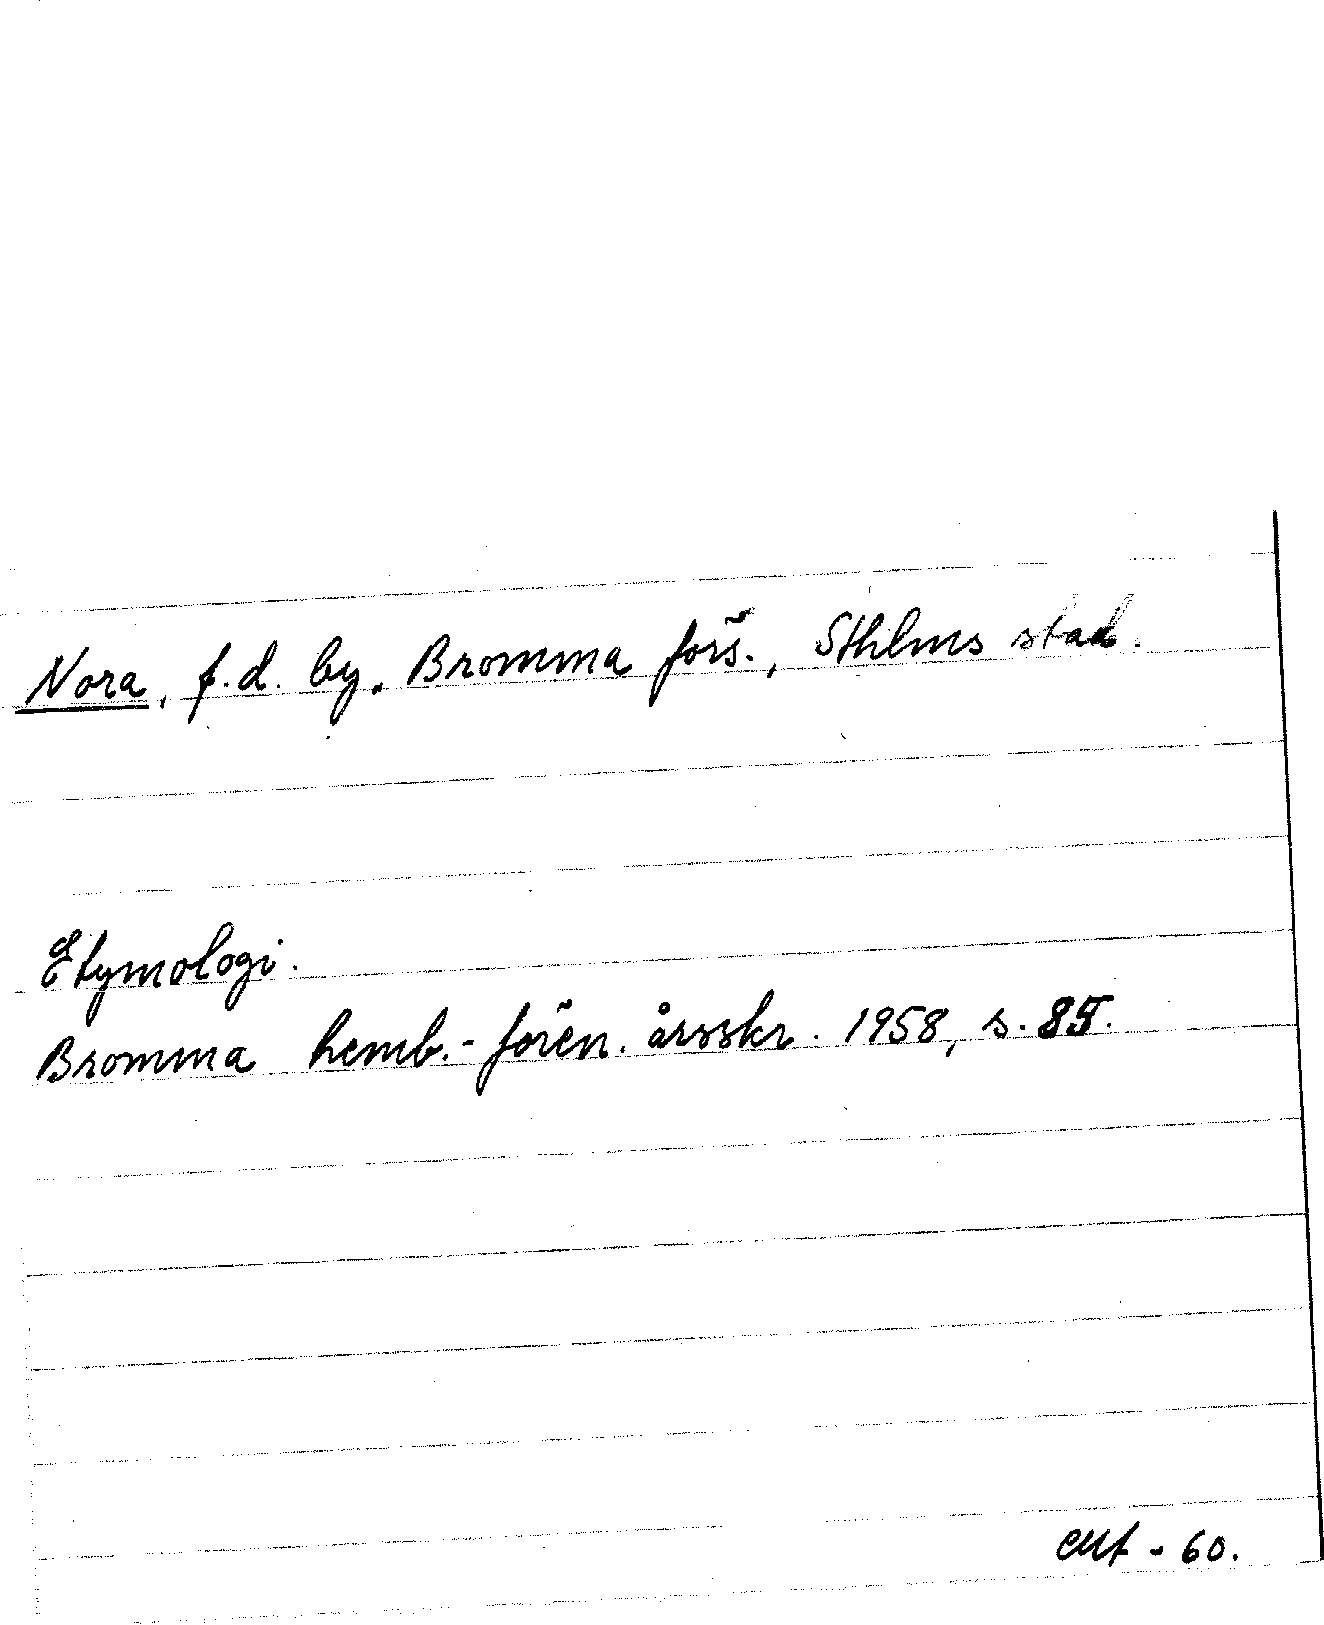 Nora, f.d. by, Bromma förs., Sthlms stad.
Etymologi.
Bromma hemb.-fören. årsskr. 1958, s. 85.
- 60.